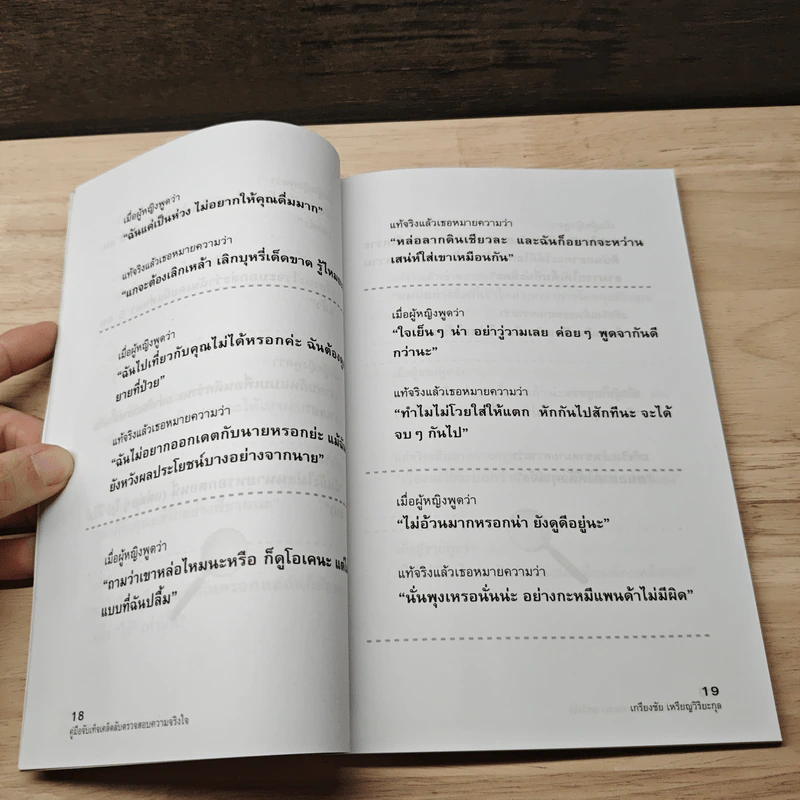 เมื่อผู้หญิงพูดว่า
“ฉันแค่เป็นห่วง ไม่อยากให้คุณดื่มมาก”
แท้จริงแล้วเธอหมายความว่า
“แกจะต้องเลิกเหล้า เลิกบุหรี่เด็ดขาด รู้ไหม
เมื่อผู้หญิงพูดว่า
“ฉันไปเที่ยวกับคุณไม่ได้หรอกค่ะ ฉันต้อง
ยายที่ป่วย”
แท้จริงแล้วเธอหมายความว่า
“ฉันไม่อยากออกเดตกับนายหรอกย่ะ แม้
ยังหวังผลประโยชน์บางอย่างจากนาย”
เมื่อผู้หญิงพูดว่า
“ถามว่าเขาหล่อไหมนะหรือ ก็ดูโอเคนะ แต่
แบบที่ฉันปลื้ม”
18
คู่มือจับเท็จเคล็ดลับตรวจสอบความจริงใจ
แท้จริงแล้วเธอหมายความว่า
“หล่อลากดินเชียวละ และฉันก็อยากจะหว่าน
เสน่ห์ใส่เขาเหมือนกัน”
เมื่อผู้หญิงพูดว่า
“ใจเย็นๆ น่า อย่าวู่วามเลย ค่อยๆ พูดจากันดี
กว่านะ”
แท้จริงแล้วเธอหมายความว่า
“ทำไมไม่โวยใส่ให้แตก หักกันไปสักทีนะ จะได้
จบๆ กันไป”
เมื่อผู้หญิงพูดว่า
“ไม่อ้วนมากหรอกน่า ยังดูดีอยู่นะ”
แท้จริงแล้วเธอหมายความว่า
“นั่นพุงเหรอนั่นน่ะ อย่างกะหมีแพนด้าไม่มีผิด”
19
เกรียงชัย เหรียญวิริยะกุล